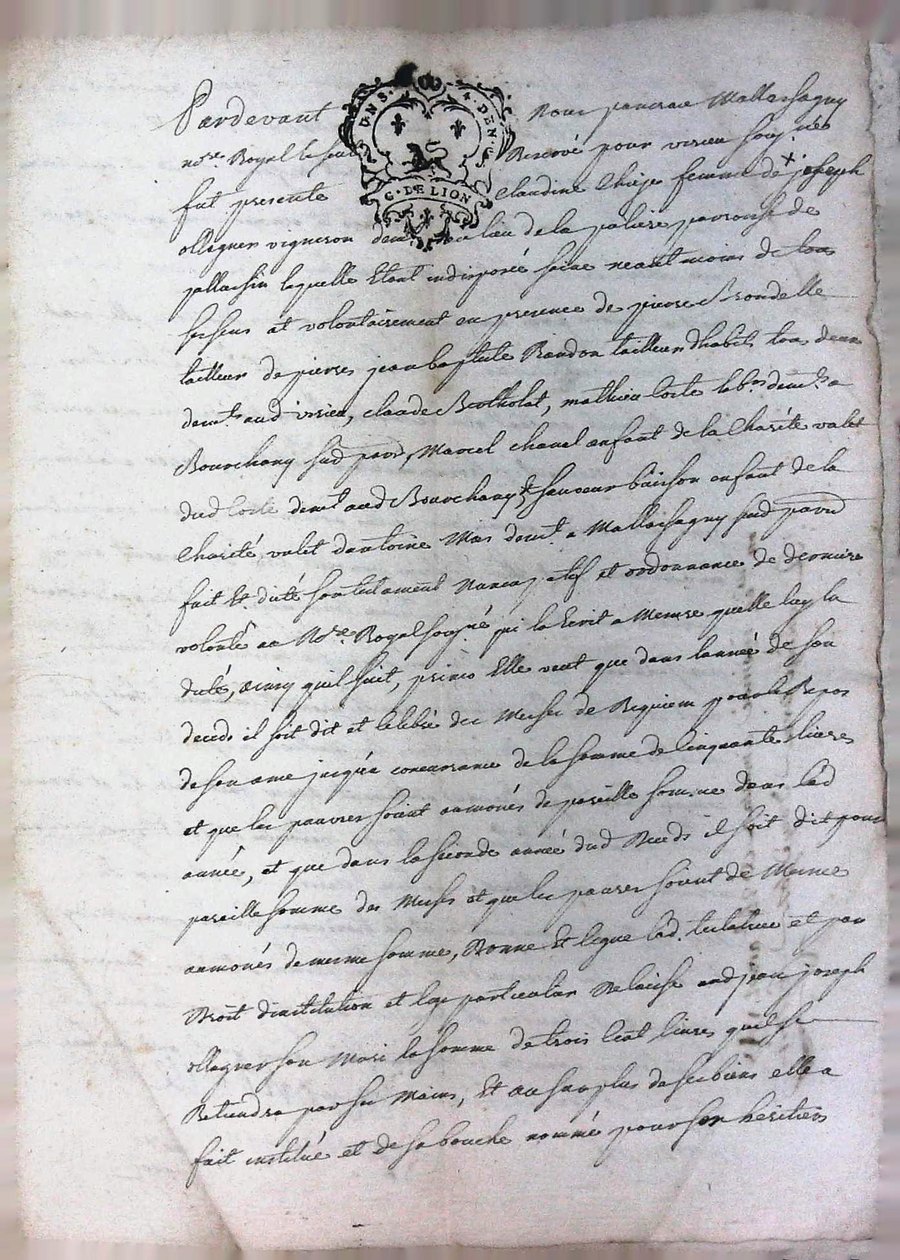 Pardevant Nous pancrau Mallassagny
UN S. 4. DEN. US
G. DE LION
nore Royal le soir Renové pour virieu soug nés
fut presente Claudine Chieze femme de x joseph
ollagner vigneron demt au lieu de la palière parroisse de
pellassin laquelle Etant indisposée saine neantmoins de tous
ses sens et volontairement en presence de pierre Brondelle
tailleur de pierres jean baptiste Bandon tailleur dhabits tous deux
demts aud virieu, claude Bertholat, mathieu corte labrs demts a
Bourchany sud parrd, Marcel chanal enfant de la Charité valet
dud corte demt aud Bourchany, & sauveur buisson enfant de la
Charité valet dantoine Mas demt a Mallassagny sud parrd
fait Et dicté son testament nuncupatif et ordonnance de derniere
volonté au Nore Royal sousigné qui la Ecrit a Mesure quelle luy la
dicté, ainsy quil suit, primo Elle veut que dans lannée de son
deceds il soit dit et celebré des Messes de Requiem pour le Repos
de son ame jusqu'a concurrance de la somme de cinquante livres
et que les pauvres soient aumonés de pareille somme dans lad
année, et que dans la seconde année dud deceds il soit dit pour
pareille somme des Messes et que les pauvres soient de Meme
aumonés de meme somme, Donne Et legue lad. testatrice et par
Droit dinstitution et legs particulier Delaisse aud jean joseph
ollagner son Mari la somme de trois cent livres quil se
Retiendra par ses Mains, Et au surplus de ses biens elle a
fait institué et de sa bouche nommé pour son heritiers